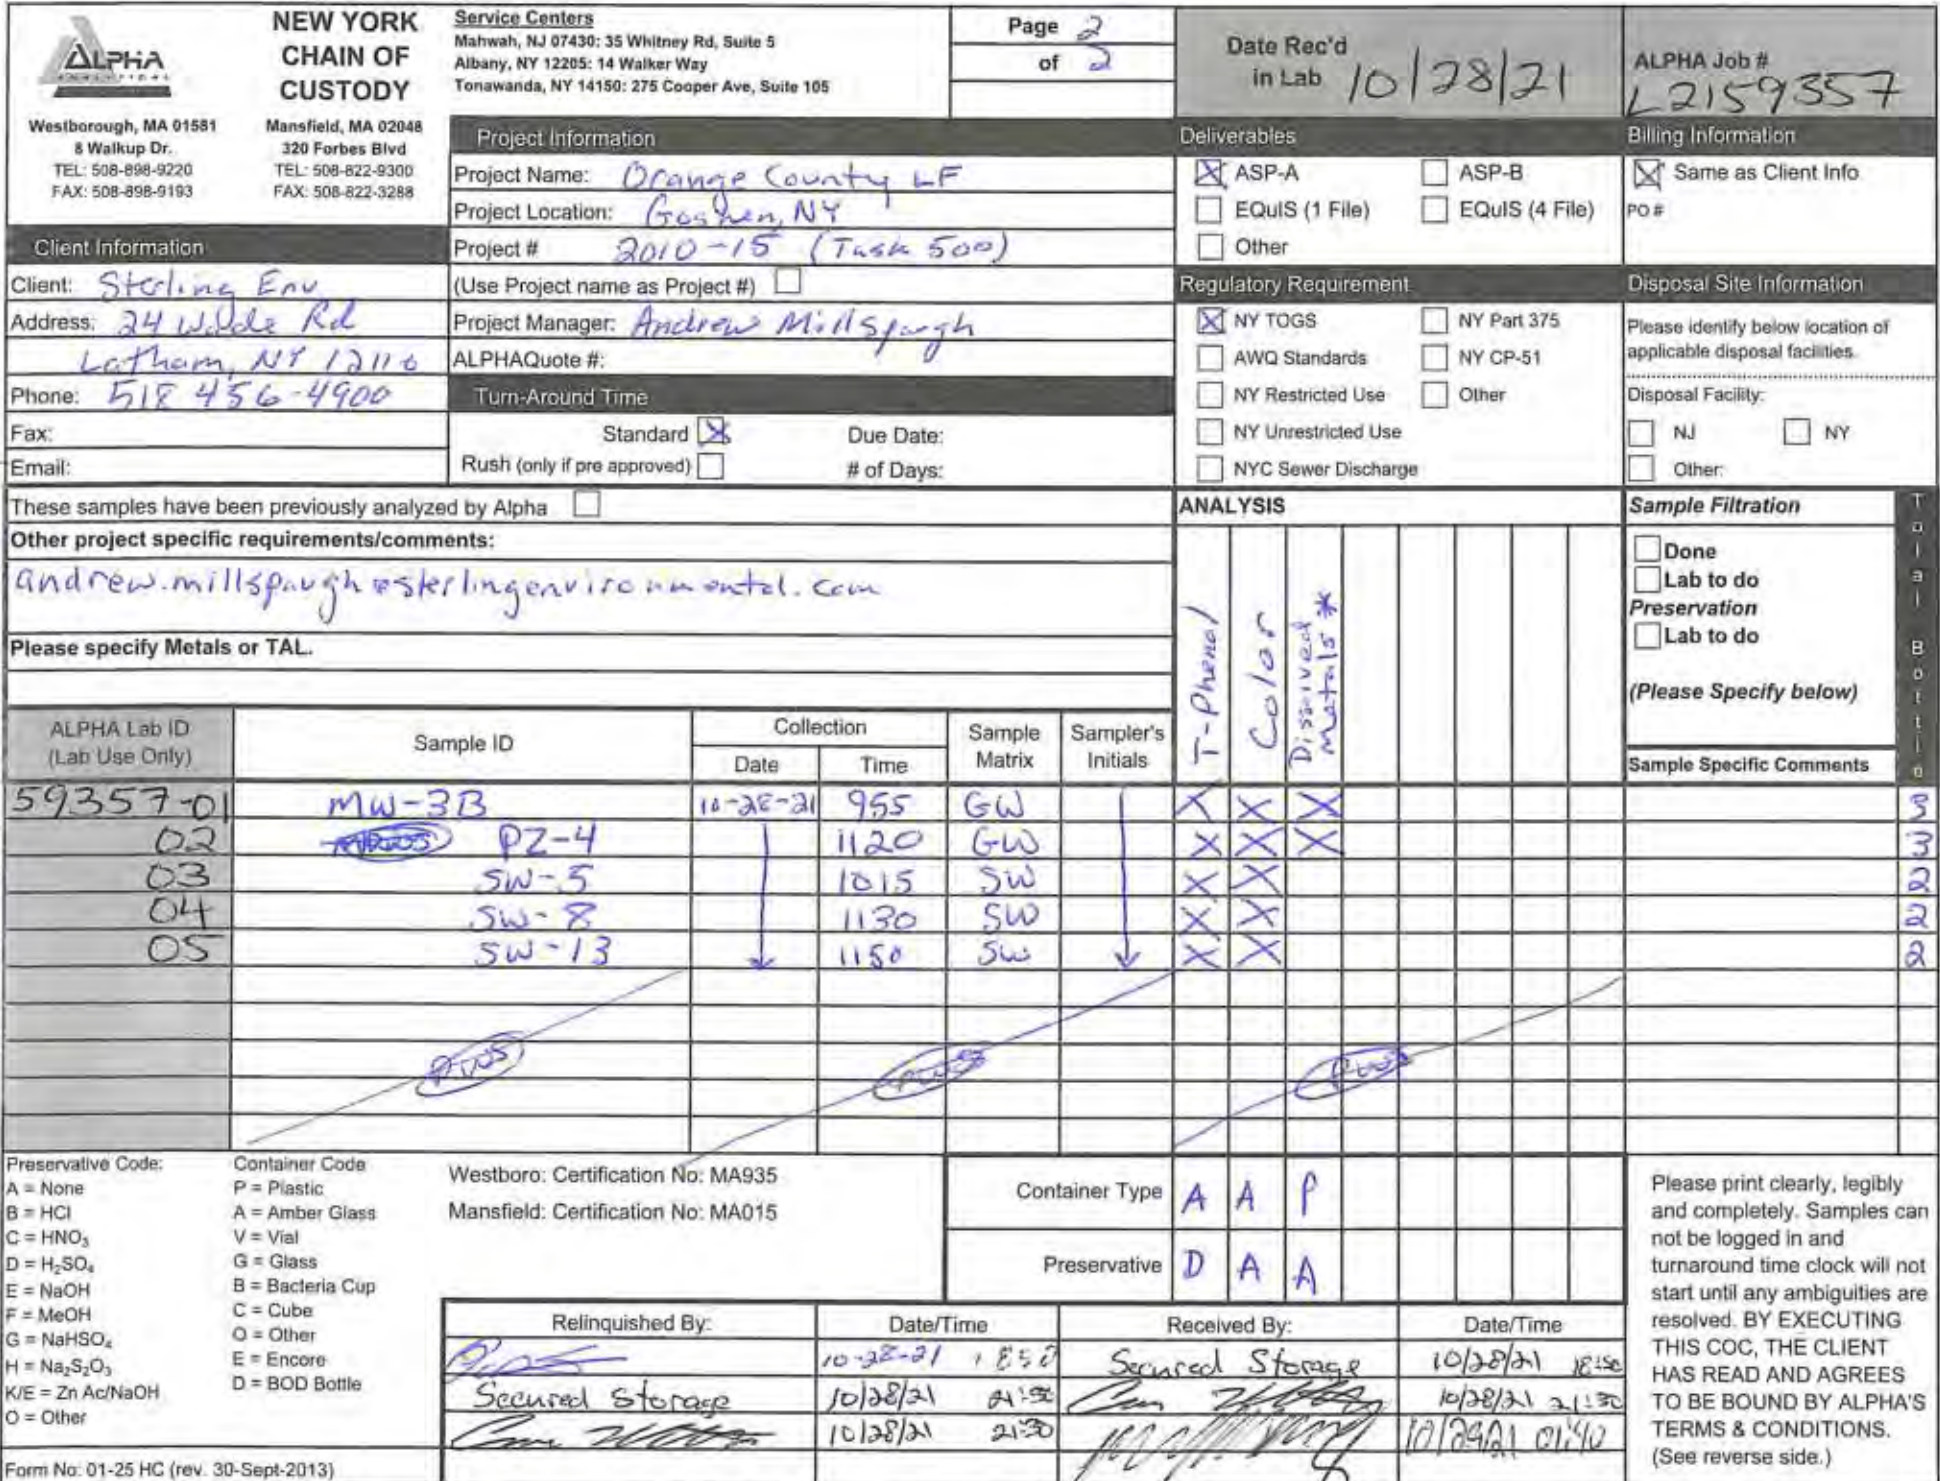 ALPHA
ANALYTICAL
Westborough, MA 01581
8 Walkup Dr.
TEL: 508-898-9220
FAX: 508-898-9193
NEW YORK
CHAIN OF
CUSTODY
Mansfield, MA 02048
320 Forbes Blvd
TEL: 508-822-9300
FAX: 508-822-3288
Service Centers
Mahwah, NJ 07430: 35 Whitney Rd, Suite 5
Albany, NY 12205: 14 Walker Way
Tonawanda, NY 14150: 275 Cooper Ave, Suite 105
Page 2
of 2
Date Rec'd
in Lab 10/28/21
ALPHA Job #
L2159357
Project Information
Project Name: Orange County LF
Project Location: Goshen, NY
Project # 2010-15 (Task 500)
(Use Project name as Project #)
Project Manager: Andrew Millspaugh
ALPHAQuote #:
Deliverables
X ASP-A
ASP-B
EQuIS (1 File)
EQuIS (4 File)
Other
Billing Information
X Same as Client Info
PO #
Client Information
Client: Sterling Env
Address: 24 Wade Rd
Latham, NY 12110
Phone: 518 456-4900
Fax:
Email:
Turn-Around Time
Standard X
Due Date:
Rush (only if pre approved)
# of Days:
Regulatory Requirement
X NY TOGS
NY Part 375
AWQ Standards
NY CP-51
NY Restricted Use
Other
NY Unrestricted Use
NYC Sewer Discharge
Disposal Site Information
Please identify below location of
applicable disposal facilities.
Disposal Facility:
NJ
NY
Other:
These samples have been previously analyzed by Alpha
Other project specific requirements/comments:
andrew.millspaugh@sterlingenvironmental.com
Please specify Metals or TAL.
ANALYSIS
T-Phenol
Color
Dissolved
Metals *
Sample Filtration
Done
Lab to do
Preservation
Lab to do
(Please Specify below)
Total Bottle
ALPHA Lab ID
(Lab Use Only)
Sample ID
Collection
Date
Time
Sample
Matrix
Sampler's
Initials
Sample Specific Comments
59357-01 MW-3B 10-28-21 955 GW X X X 3
02 PZ-4 1120 GW X X X 3
03 SW-5 1015 SW X X 2
04 SW-8 1130 SW X X 2
05 SW-13 1150 SW X X 2
Preservative Code:
A = None
B = HCl
C = HNO₃
D = H₂SO₄
E = NaOH
F = MeOH
G = NaHSO₄
H = Na₂S₂O₃
K/E = Zn Ac/NaOH
O = Other
Container Code
P = Plastic
A = Amber Glass
V = Vial
G = Glass
B = Bacteria Cup
C = Cube
O = Other
E = Encore
D = BOD Bottle
Westboro: Certification No: MA935
Mansfield: Certification No: MA015
Container Type A A P
Preservative D A A
Relinquished By:
Date/Time
Received By:
Date/Time
10-28-21 1850 Secured Storage 10/28/21 18:50
Secured Storage 10/28/21 21:30 10/28/21 21:30
10/28/21 21:30 10/29/21 01:40
Please print clearly, legibly
and completely. Samples can
not be logged in and
turnaround time clock will not
start until any ambiguities are
resolved. BY EXECUTING
THIS COC, THE CLIENT
HAS READ AND AGREES
TO BE BOUND BY ALPHA'S
TERMS & CONDITIONS.
(See reverse side.)
Form No: 01-25 HC (rev. 30-Sept-2013)